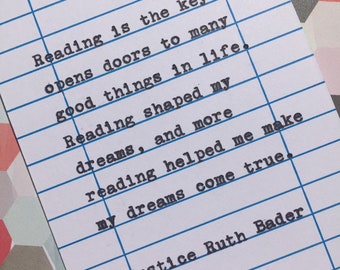 Reading is the key
opens doors to many
good things in life.
Reading shaped my
dreams, and more
reading helped me make
my dreams come true.
stice Ruth Bader